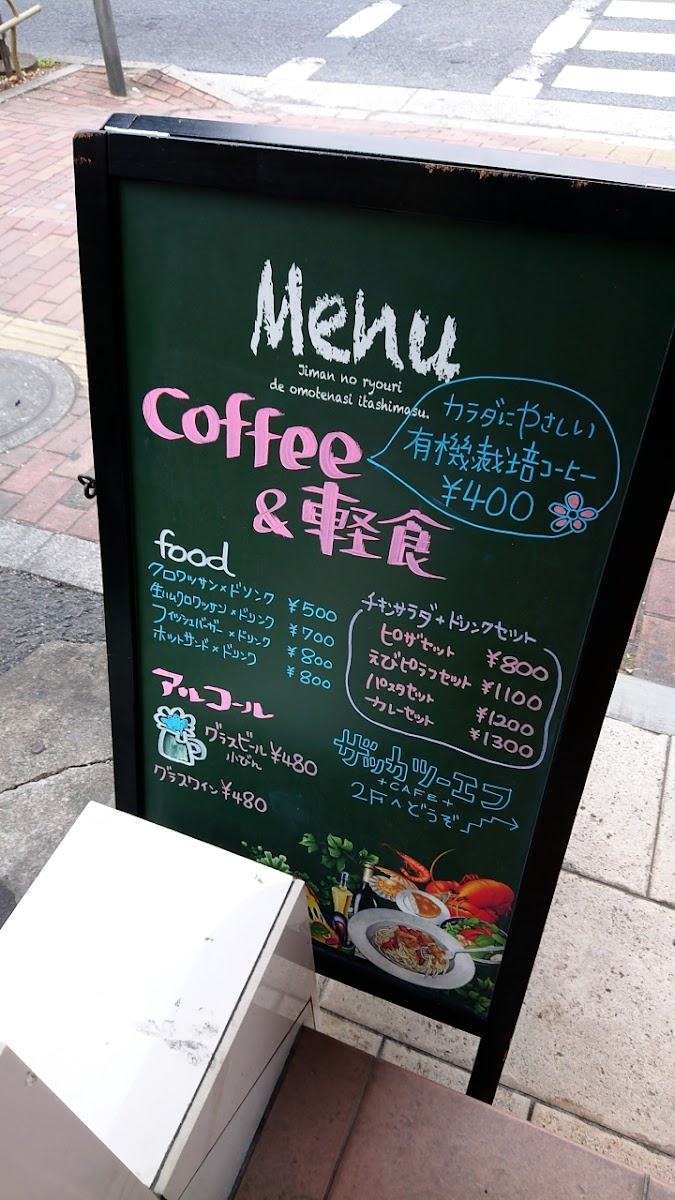 Menu
Jiman no ryouri
de omotenasi itashimasu.
Coffee
&軽食
カラダにやさしい
有機栽培コーヒー
¥400
food
クロワッサン×ドリンク ¥500
生ハムクロワッサン×ドリンク ¥700
フィッシュバーガー×ドリンク ¥800
ホットサンド×ドリンク ¥800
チキンサラダ+ドリンクセット
ピザセット ¥800
えびピラフセット ¥1100
パスタセット ¥1200
カレーセット ¥1300
アルコール
グラスビール ¥480
小びん
グラスワイン ¥480
ザッカツーエフ
+CAFE+
2Fへどうぞ